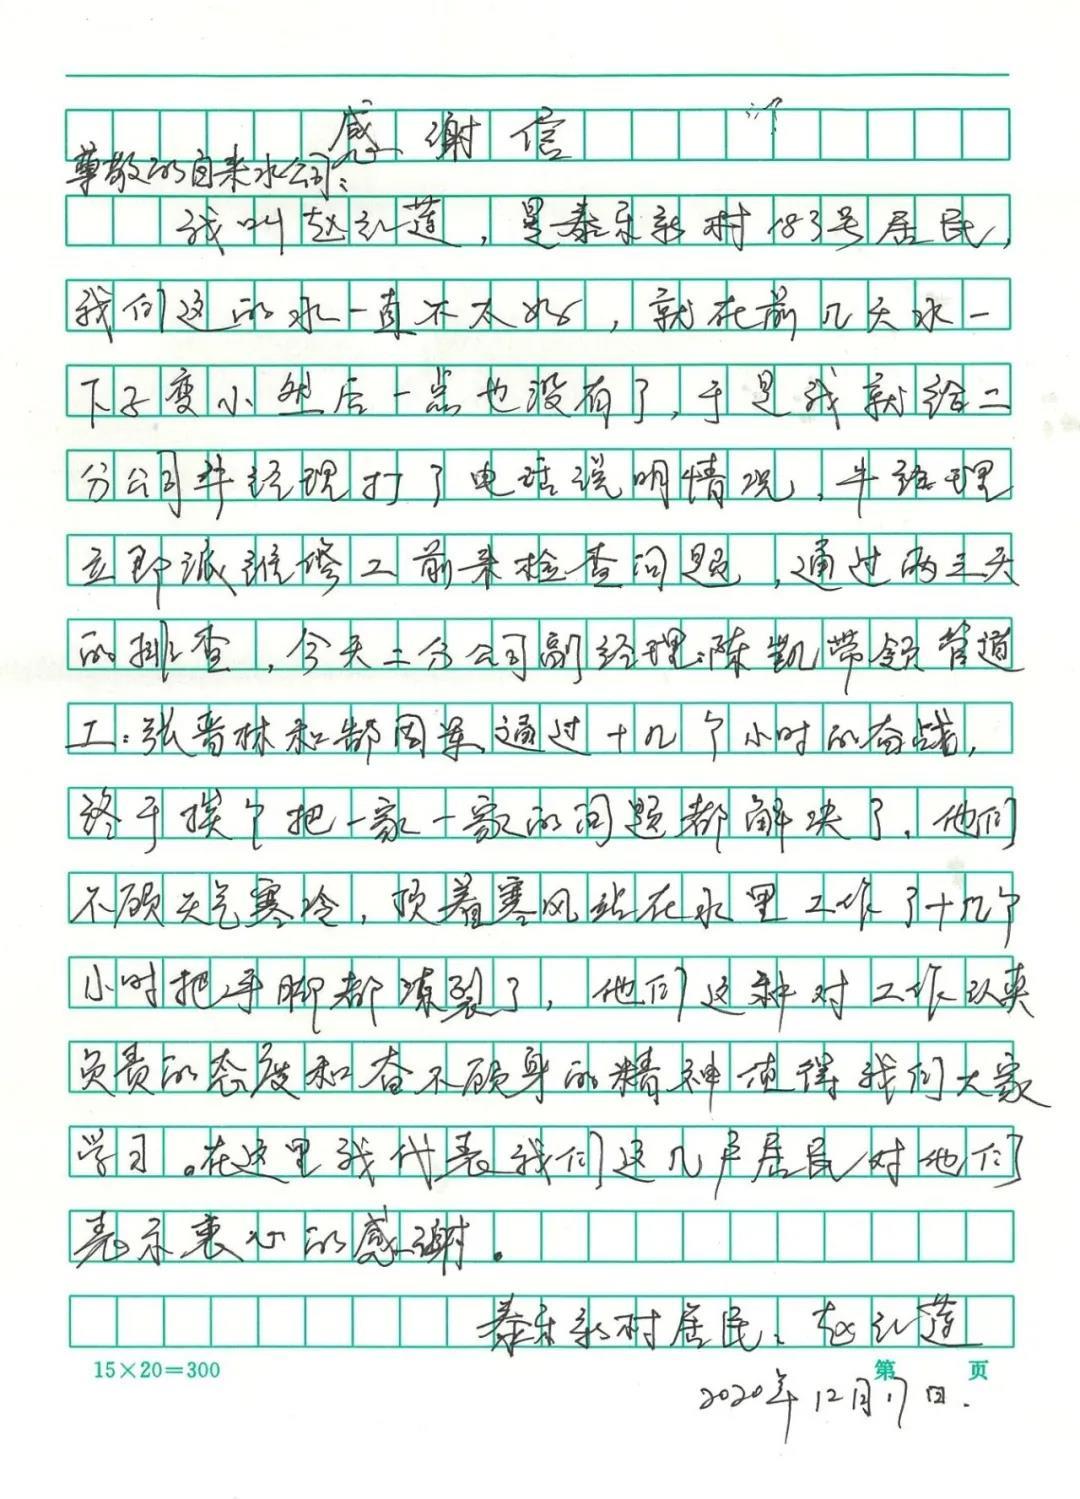 感谢信
尊敬的自来水公司：
我叫赵红莲，是泰乐新村183号居民，
我们这的水一直不太好，就在前几天水一
下子变小然后一点也没有了，于是我就给二
分公司牛经理打了电话说明情况，牛经理
立即派维修工前来检查问题，通过两三天
的排查，今天二分公司副经理：陈凯带领管道
工：张晋林和郝国军通过十几个小时的奋战，
终于挨个把一家一家的问题都解决了，他们
不顾天气寒冷，顶着寒风站在水里工作了十几个
小时把手脚都冻裂了，他们这种对工作认真
负责的态度和奋不顾身的精神值得我们大家
学习。在这里我代表我们这几户居民对他们
表示衷心的感谢。
泰乐新村居民：赵红莲
15×20=300 第 页
2020年12月17日.